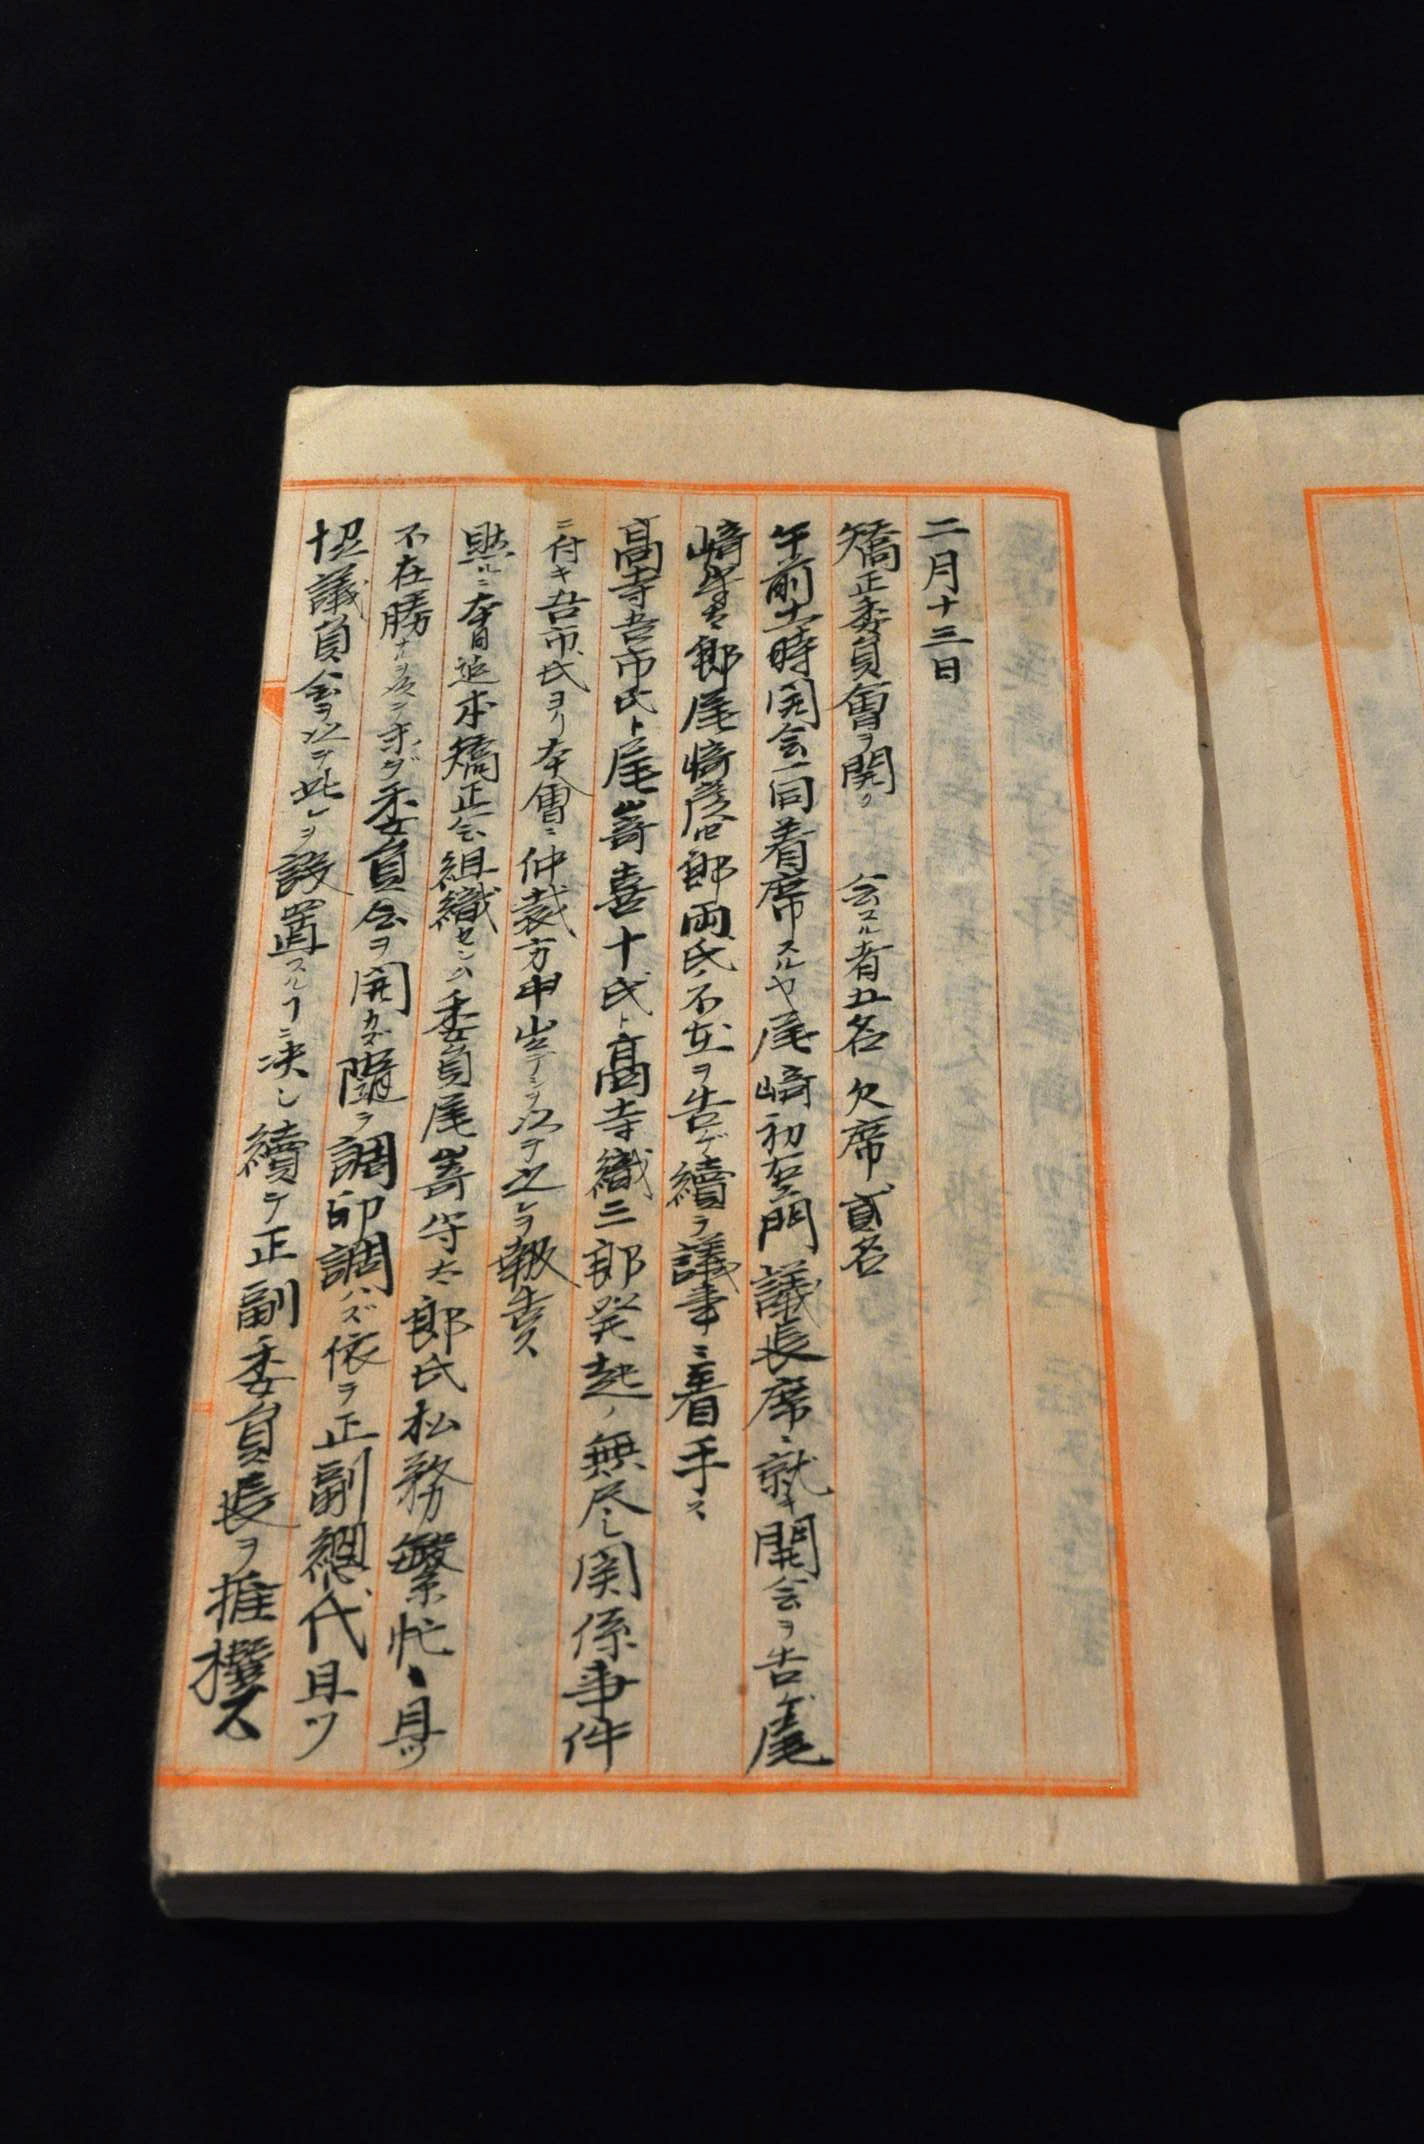 二月十三日
矯正委員會ヲ開ク 会スル者五名 欠席貳名
午前十一時開会一同着席スルヤ尾崎初右エ門議長席ニ就キ開会ヲ告ゲ尾
崎守太郎尾崎彦四郎両氏ノ不在ヲ告ゲ續ヲ議事ニ着手ス
髙寺吾市氏ト尾嵜喜十氏ト髙寺織三郎発起ノ無尽シ関係事件
ニ付キ吾市氏ヨリ本會ニ仲裁方申出デシヲ以テ之レヲ報告ス
然ルニ本日迄本矯正会組織センハ委員尾嵜守太郎氏私務繁忙ニ且ツ
不在勝ナルヲ以テ未ダ委員会ヲ開カズ隨ヲ調印調ハズ依ヲ正副總代且ツ
协議員会ヲ以テ此レヲ設置スルヿニ决シ續テ正副委員長ヲ推撰ス